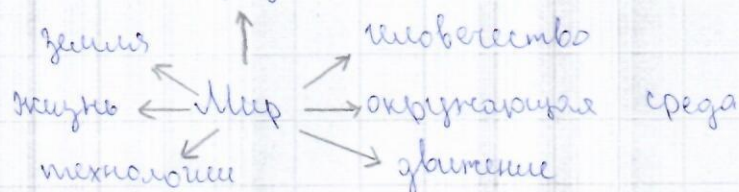 земля человечество
жизнь Мир окружающая среда
технологии движение